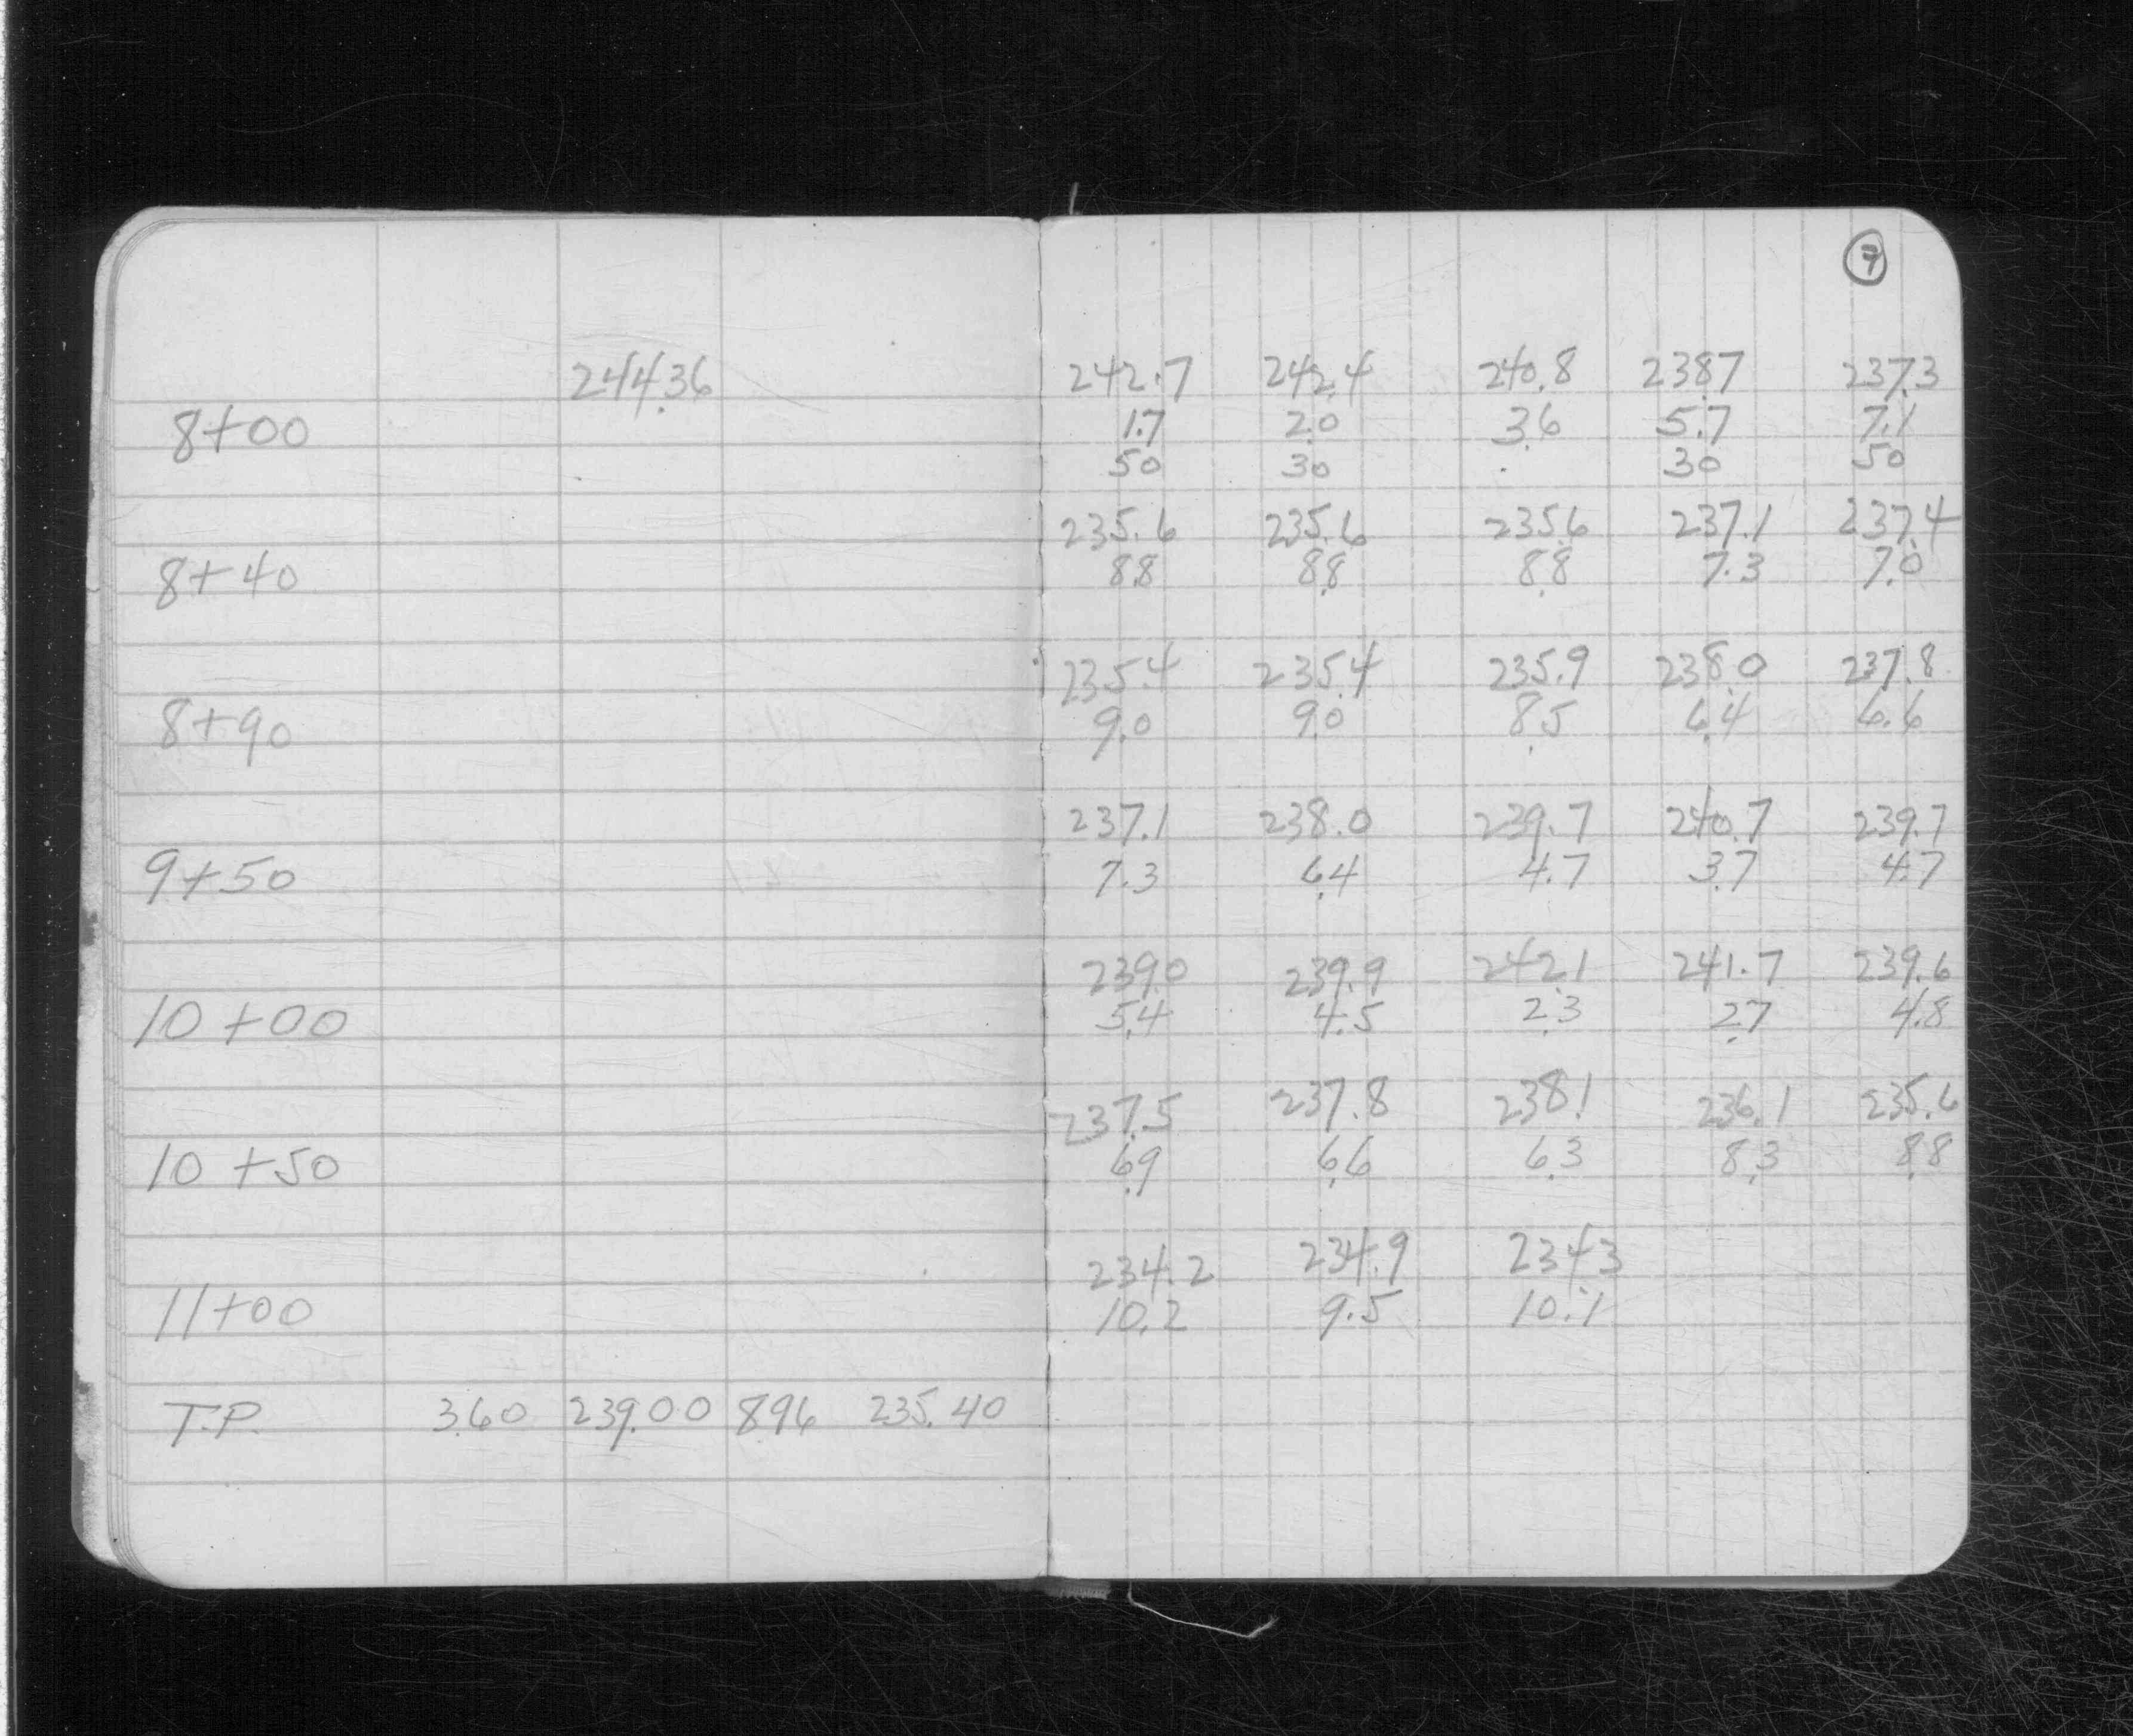 7
244.36 242.7 242.4 240.8 238.7 237.3
8+00 1.7 2.0 3.6 5.7 7.1
50 30 30 50
235.6 235.6 235.6 237.1 237.4
8+40 8.8 8.8 8.8 7.3 7.0
235.4 235.4 235.9 238.0 237.8
8+90 9.0 9.0 8.5 6.4 6.6
237.1 238.0 239.7 240.7 239.7
9+50 7.3 6.4 4.7 3.7 4.7
239.0 239.9 242.1 241.7 239.6
10+00 5.4 4.5 2.3 2.7 4.8
237.5 237.8 238.1 236.1 235.6
10+50 6.9 6.6 6.3 8.3 8.8
234.2 234.9 234.3
11+00 10.2 9.5 10.1
T.P. 3.60 239.00 8.96 235.40